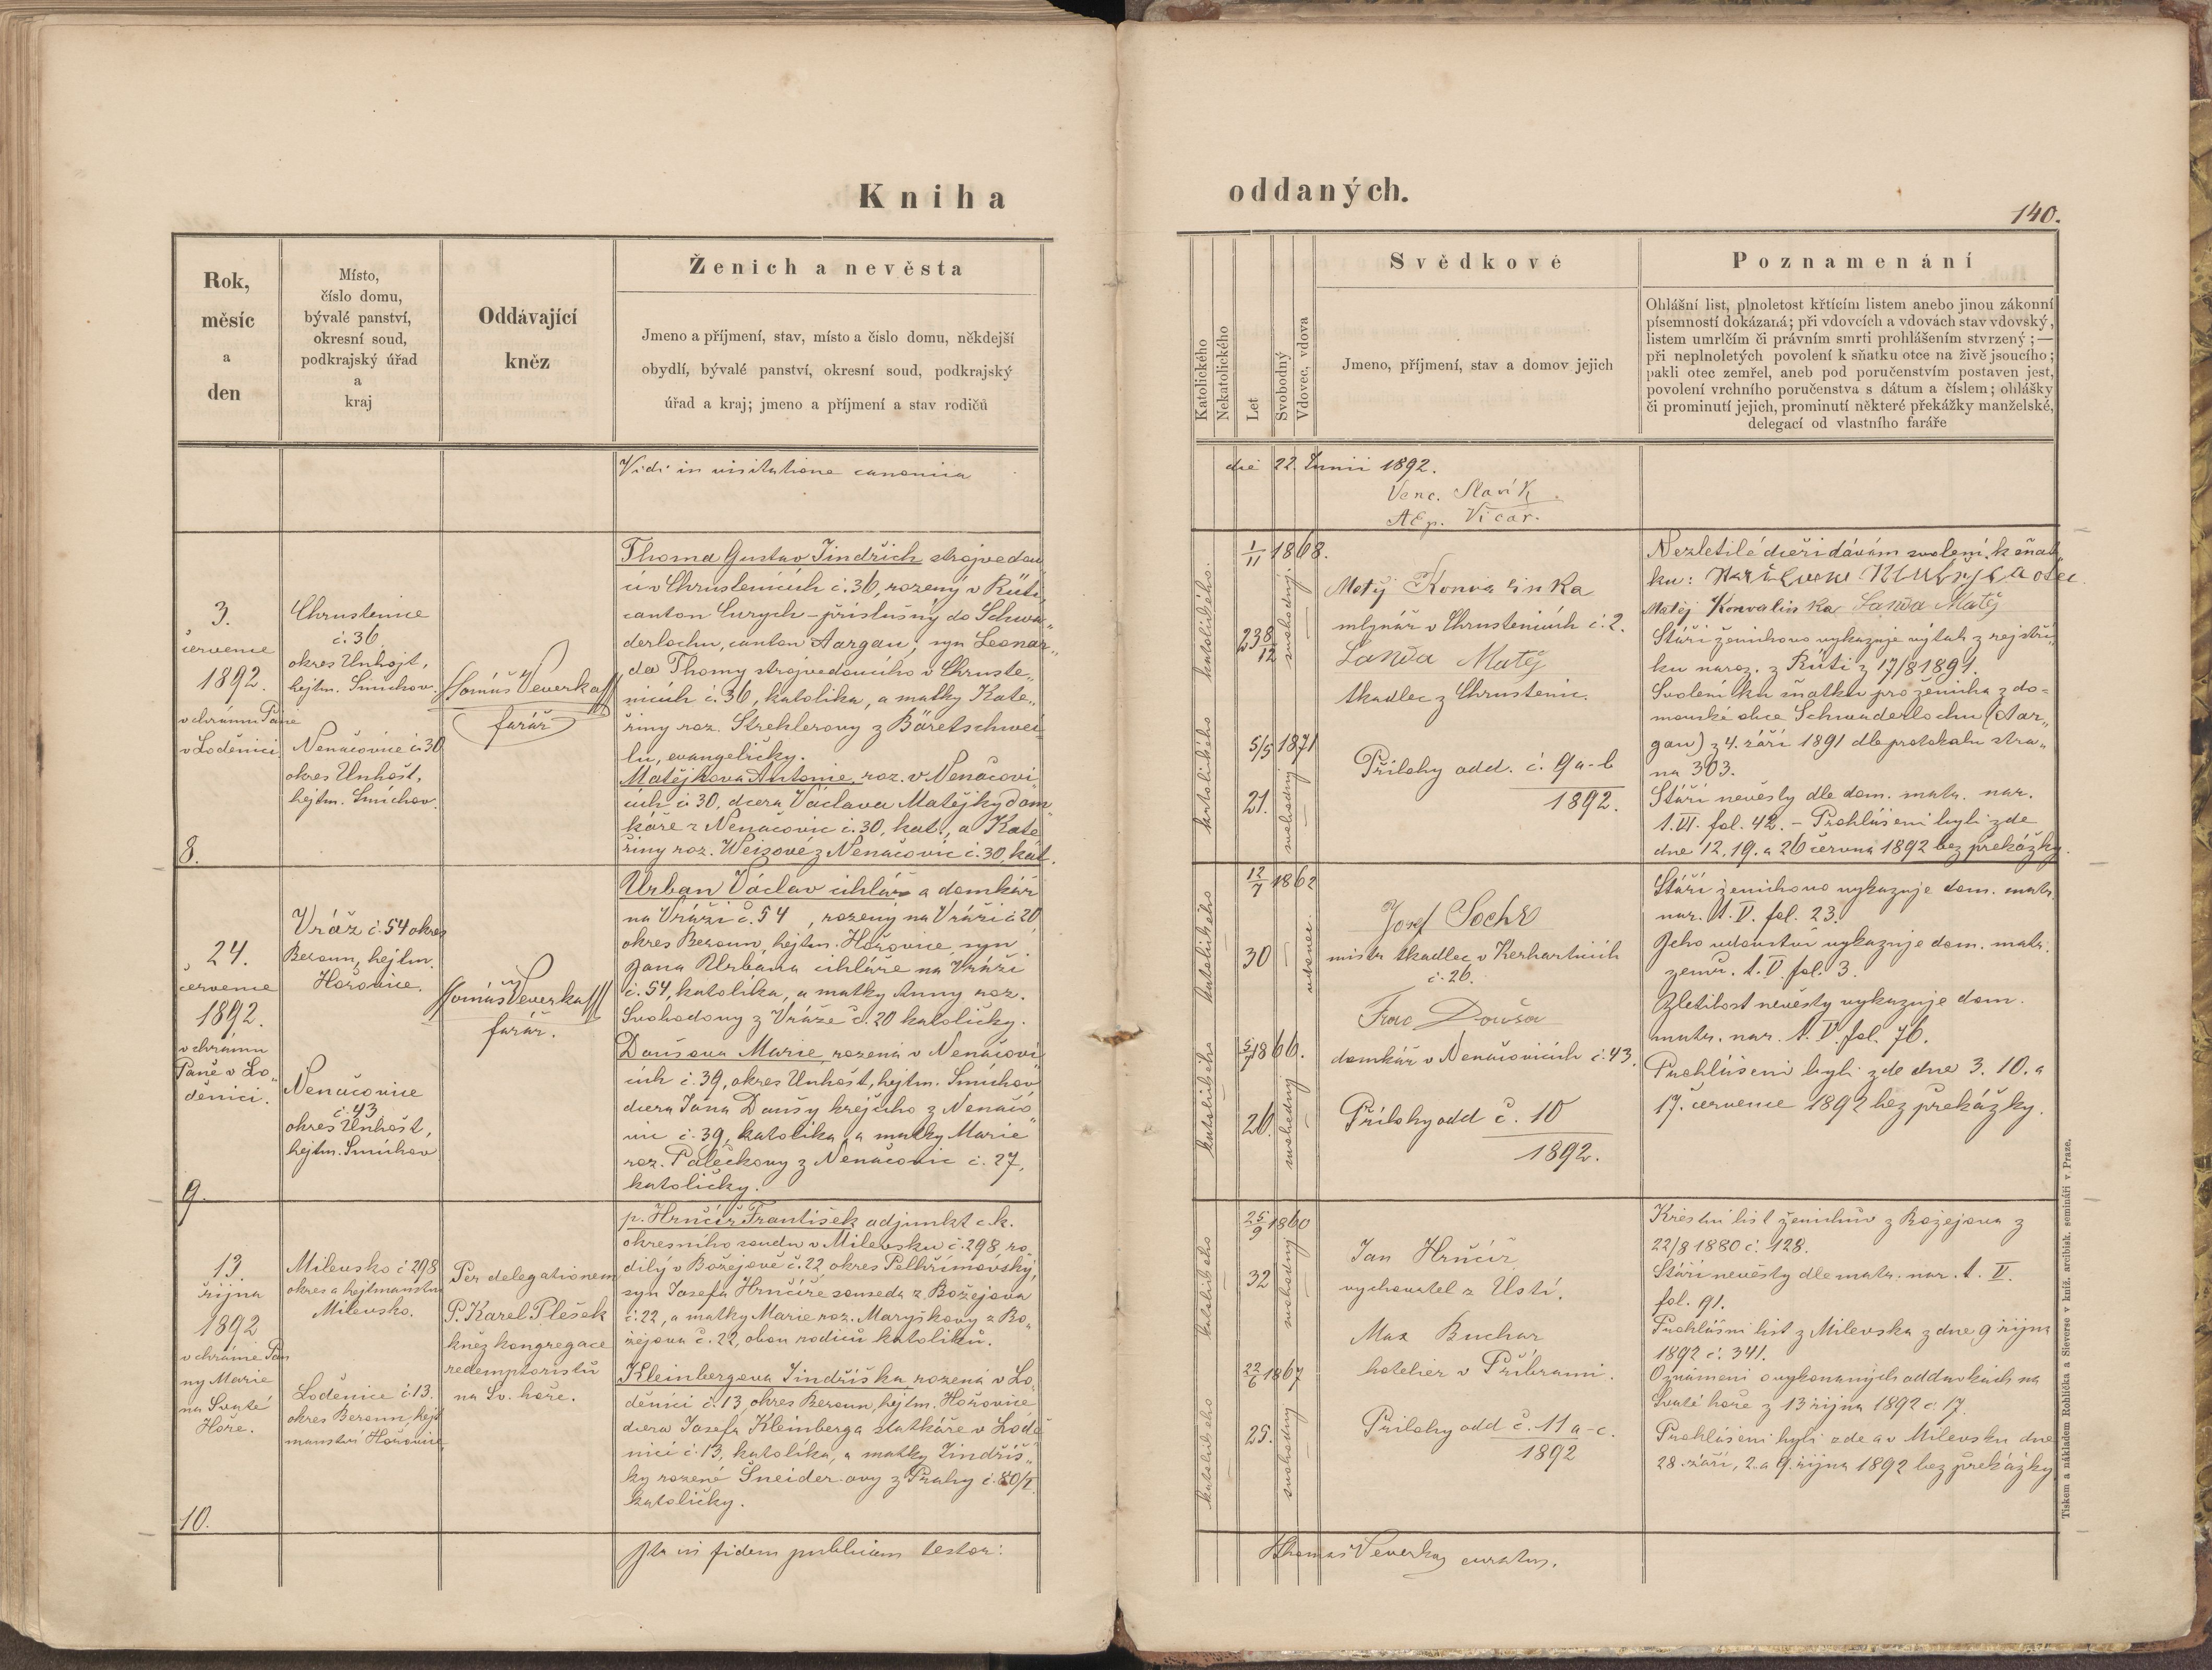 Kniha
oddaných.
140.
Rok,
měsíc
a
den
Místo,
číslo domu,
bývalé panství,
okresní soud,
podkrajský úřad
a
kraj
Oddávající
kněz
Ženich a nevěsta
Jmeno a příjmení, stav, místo a číslo domu, někdejší
obydlí, bývalé panství, okresní soud, podkrajský
úřad a kraj; jmeno a příjmení a stav rodičů
Katolického
Nekatolického
Let
Svobodný
Vdovec, vdova
Svědkové
Jmeno, příjmení, stav a domov jejich
Poznamenání
Ohlášní list, plnoletost křtícím listem anebo jinou zákonní
písemností dokázaná; při vdovcích a vdovách stav vdovský,
listem umrlčím či právním smrti prohlášením stvrzený; —
při neplnoletých povolení k sňatku otce na živě jsoucího;
pakli otec zemřel, aneb pod poručenstvím postaven jest,
povolení vrchního poručenstva s dátum a číslem; ohlášky
či prominutí jejich, prominutí některé překážky manželské,
delegací od vlastního faráře
Vidi in visitatione canonica
die 22. Junii 1892.
Venc. Slavík
AEp. Vicar.
3.
července
1892.
v chrámu Páně
v Loděnici
8.
Chrustenice
č. 36
okres Unhošt,
hejtm. Smíchov.
Nenačovice č. 30
okres Unhošt,
hejtm. Smíchov.
Tomáš Veverka
farář
Thoma Gustav Jindřich strojvedou
cí v Chrustenicích č. 36, rozený v Rüti,
canton Curych – příslušný do Schwa„
derlochu, canton Aargau, syn Leonar„
da Thomy strojvedoucího v Chruste„
nicích č. 36, katolíka, a matky Kate„
řiny roz. Strehlerovy z Bäretschwei
lu, evangeličky.
Matějkova Antonie, roz. v Nenačovi
cích č. 30, dcera Václava Matějky dom
káře z Nenačovic č. 30, kat., a Kate
řiny roz. Weizové z Nenačovic č. 30, kat.
katolického.
katolického
1/11 1868.
23 8/12
5/5 1871
21.
svobodný.
svobodný
Matěj Konvalinka
mlynář v Chrustenicích č. 2.
Landa Matěj
tkadlec z Chrustenic.
Přílohy odd. č. 9 a-b
1892.
Nezletilé dceři dávám svolení k sňat„
ku: otec.
Matěj Konvalinka Landa Matěj
Stáří ženichovo vykazuje výtah z rejstří„
ku naroz. z Rüti z 17/8 1891.
Svolení ku sňatku pro ženicha z do-
movské obce Schwaderlochu (Aar„
gau) z 4. září 1891 dle protokolu stra„
na 303.
Stáří nevěsty dle dom. matr. nar.
t. VI. fol. 42. – Prohlášeni byli zde
dne 12, 19. a 26 června 1892 bez překážky.
24.
července
1892.
v chrámu
Páně v Lo„
děnici.
9.
Vráž č. 54 okres
Beroun, hejtm.
Hořovice.
Nenačovice
č. 43
okres Unhošt,
hejtm. Smíchov
Tomáš Veverka
farář.
Urban Václav cihlář a domkář
na Vráži č. 54, rozený na Vráži č 20
okres Beroun, hejtm. Hořovice, syn
Jana Urbana cihláře na Vráži
č. 54, katolíka, a matky Anny roz.
Svobodovy z Vráže č. 20 katoličky.
Doušova Marie, rozená v Nenačovi
cích č. 39, okres Unhošt, hejtm. Smíchov
dcera Jana Doušy krejčího z Nenačo
vic č. 39, katolíka, a matky Marie
roz. Palečkovy z Nenačovic č. 27,
katoličky.
katolického
katolického
12/7 1862
30
5/7 1866.
26.
vdovec.
svobodný
Josef Sochr
mistr tkadlec v Kerharticích
č. 26.
Franc Douša
domkář v Nenačovicích č. 43.
Přílohy odd č. 10
1892.
Stáří ženichovo vykazuje dom. matr.
nar. t. V. fol. 23.
Jeho vdovství vykazuje dom. matr.
zemř. t. V. fol. 3.
Zletilost nevěsty vykazuje dom.
matr. nar. t. V. fol. 76.
Prohlášeni byli zde dne 3. 10. a
17. července 1892 bez překážky.
13.
října
1892
v chrámě Pan
ny Marie
na Svaté
Hoře.
10.
Milevsko č 298
okres a hejtmanství
Milevsko.
Loděnice č. 13.
okres Beroun, hejt
manství Hořovice
Per delegationem
P. Karel Plešek
kněz kongregace
redemptoristů
na Sv. hoře.
p. Hrnčíř František adjunkt c. k.
okresního soudu v Milevsku č. 298, ro„
dilý v Božejově č. 22, okres Pelhřimovský,
syn Josefa Hrnčíře souseda z Božejova
č. 22, a matky Marie roz. Maryškovy z Bo„
žejova č. 22, obou rodičů katolíků.
Kleinbergova Jindřiška rozená v Lo„
děnici č. 13, okres Beroun, hejtm. Hořovice
dcera Josefa Kleinberga statkáře v Lodě
nici č. 13, katolíka, a matky Jindřiš„
ky rozené Šneiderovy z Prahy č. 80/I.
katoličky.
katolického
katolického
25/9 1860
32
22/6 1867
25.
svobodný
svobodný
Jan Hrnčíř
vychovatel z Ústí.
Max Buchar
hotelier v Příbrami.
Přílohy odd č. 11 a-c.
1892
Křestní list ženichův z Božejova z
22/8 1880 č. 128.
Stáří nevěsty dle matr. nar. t. V.
fol. 91.
Prohlášní list z Milevska z dne 9 října
1892 č. 341.
Oznámení o vykonaných oddavkách na
Svaté hoře z 13 října 1892 č. 17.
Prohlášeni byli zde a v Milevsku dne
28. září, 2. a 9. října 1892 bez překážky
Ita in fidem publicam testor:
Thomas Veverka curatus.
Tiskem a nákladem Rohlíčka a Sieverse v kníž. arcibisk. semináři v Praze.